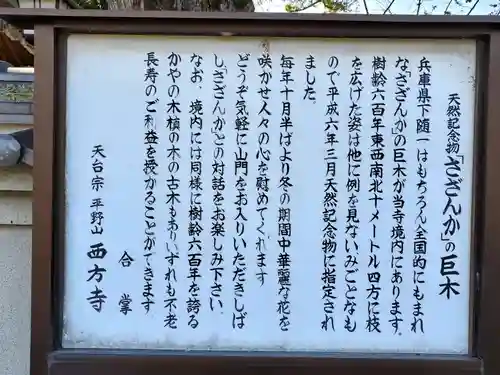 天然記念物「さざんか」の巨木
兵庫県下随一はもちろん全国的にもまれ
な「さざんか」の巨木が当寺境内にあります。
樹齢六百年東西南北十メートル四方に枝
を広げた姿は他に例を見ないみごとなも
ので平成六年三月天然記念物に指定され
ました。
毎年十月半ばより冬の期間中華麗な花を
咲かせ人々の心を慰めてくれます
どうぞ気軽に山門をお入りいただきしば
し「さざんか」との対話をお楽しみ下さい。
なお、境内には同様に樹齢六百年を誇る
かやの木槙の木の古木もありいずれも不老
長寿のご利益を授かることができます
合掌
天台宗 平野山 西方寺